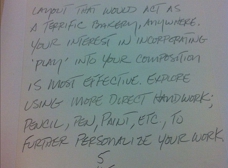 LAYOUT THAT WOULD ACT AS
A TERRIFIC BAKERY, ANYWHERE.
YOUR INTEREST IN INCORPORATING
'PLAY' INTO YOUR COMPOSITION
IS MOST EFFECTIVE. EXPLORE
USING MORE DIRECT HANDWORK;
PENCIL, PEN, PAINT, ETC, TO
FURTHER PERSONALIZE YOUR WORK.
5